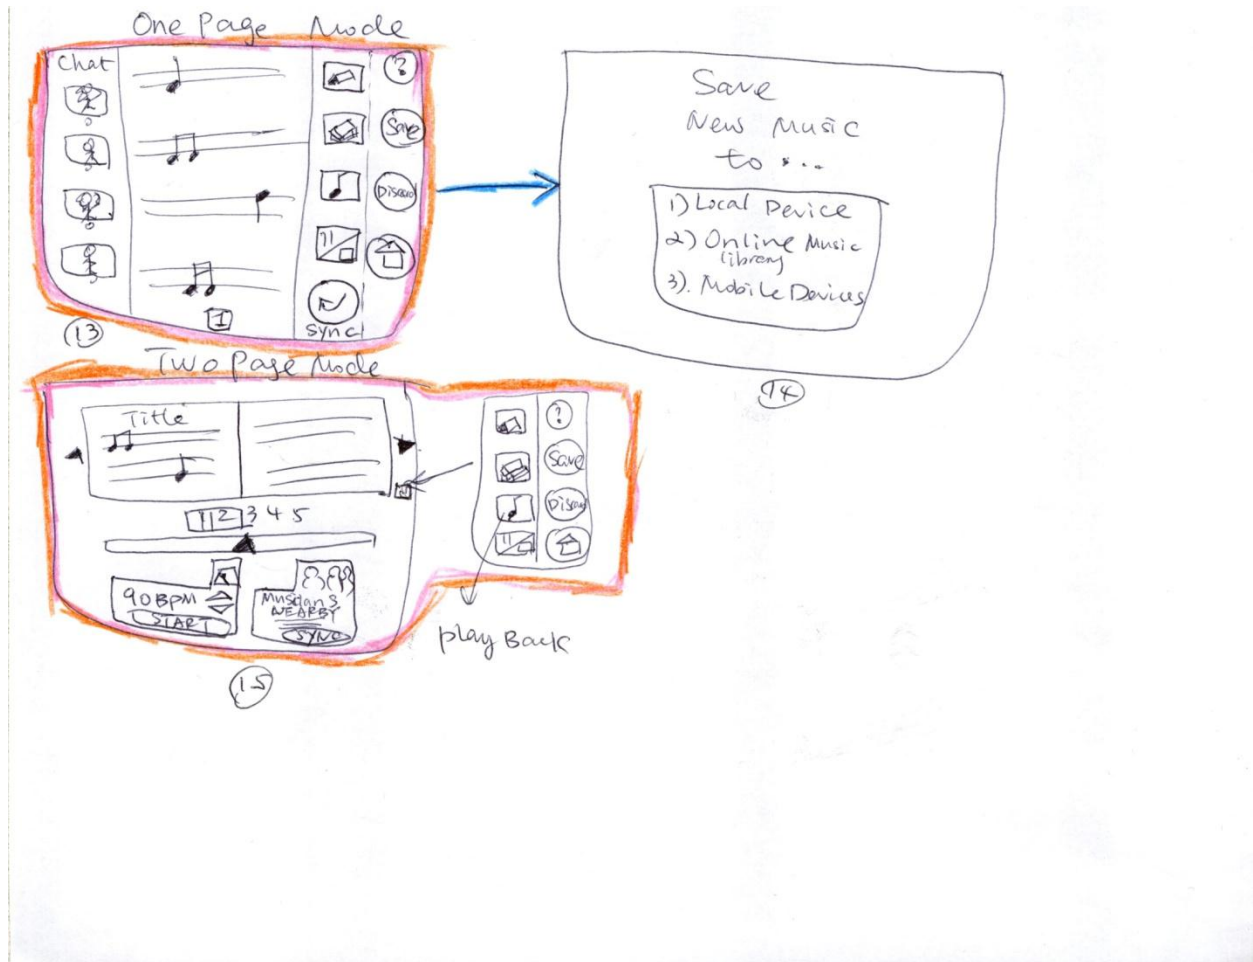 One Page Mode
Chat
?
Save
Discard
Sync
1
13
Save
New Music
to ...
1) Local Device
2) Online Music
library
3). Mobile Devices
14
Two Page Mode
Title
1 2 3 4 5
90 BPM
START
Musicians
NEARBY
SYNC
?
Save
Discard
play Back
15